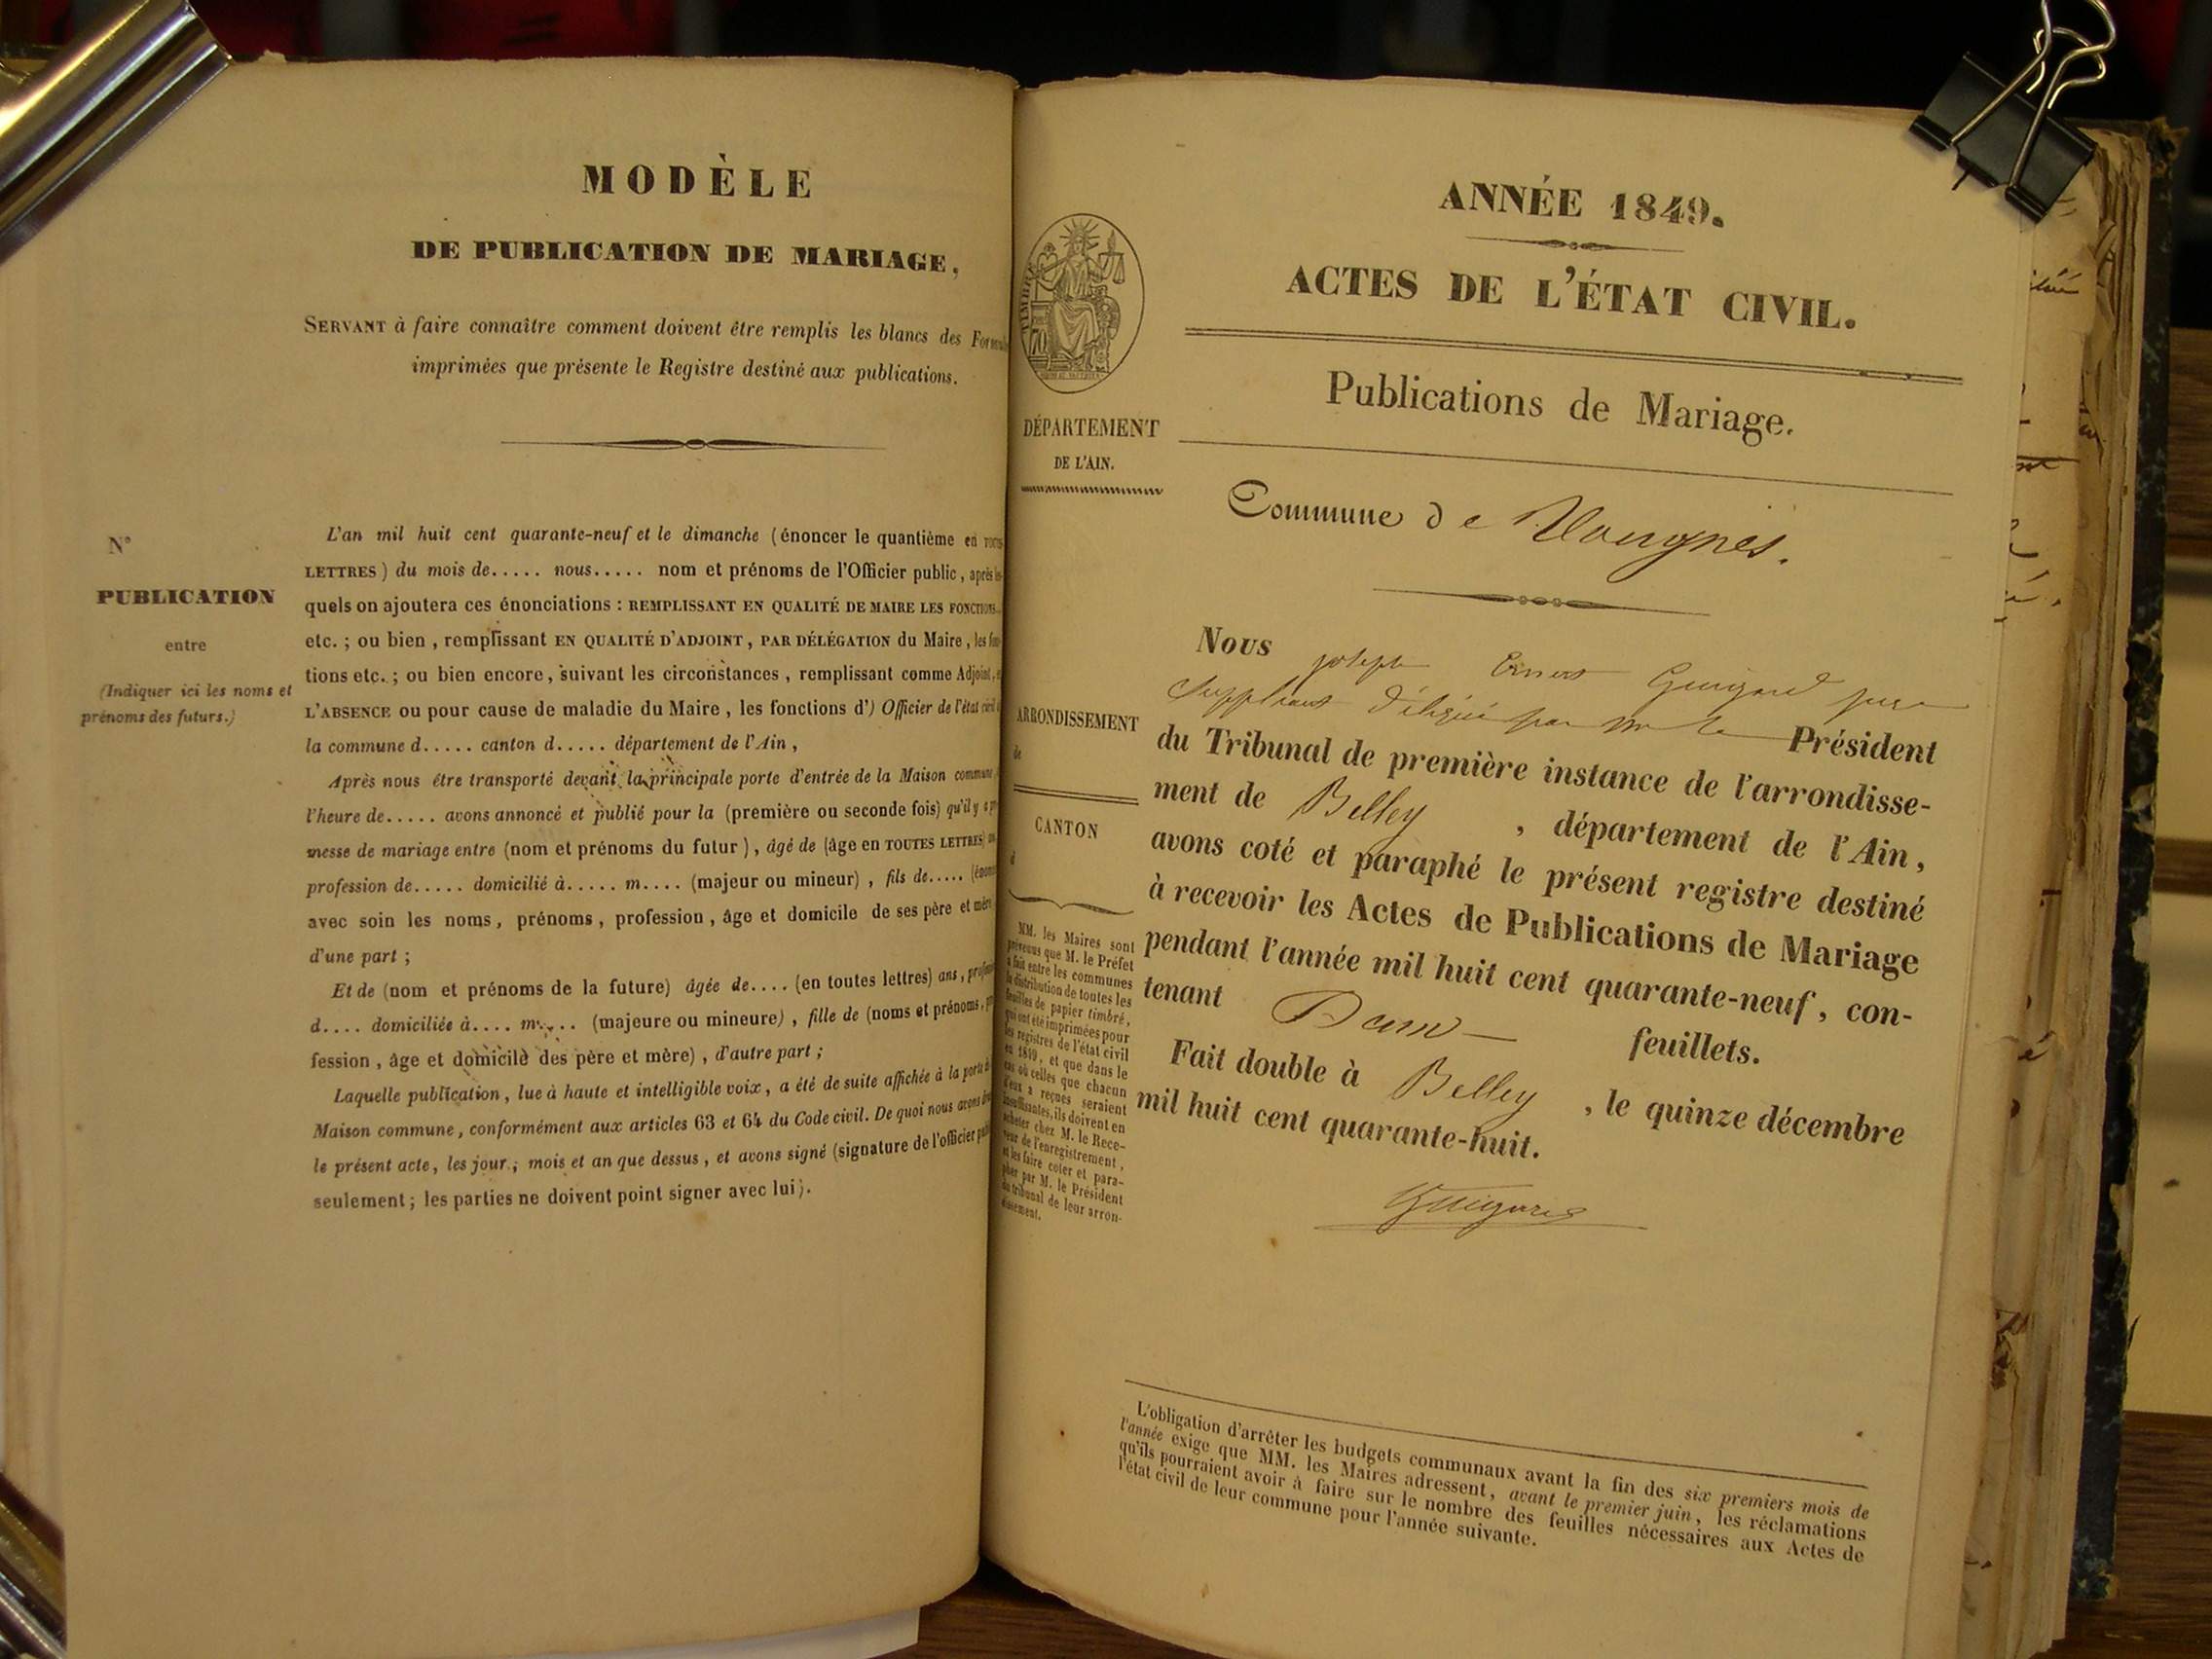 MODÈLE
DE PUBLICATION DE MARIAGE,
SERVANT à faire connaître comment doivent être remplis les blancs des
imprimées que présente le Registre destiné aux publications.
N°
PUBLICATION
entre
(Indiquer ici les noms et
prénoms des futurs.)
L'an mil huit cent quarante-neuf et le dimanche (énoncer le quantième en
LETTRES) du mois de..... nous..... nom et prénoms de l'Officier public, après
quels on ajoutera ces énonciations : REMPLISSANT EN QUALITÉ DE MAIRE LES FONCTIONS
etc. ; ou bien, remplissant EN QUALITÉ D'ADJOINT, PAR DÉLÉGATION du Maire, les
tions etc. ; ou bien encore, suivant les circonstances, remplissant comme Adjoint,
L'ABSENCE ou pour cause de maladie du Maire, les fonctions d') Officier de l'état civil
la commune d..... canton d..... département de l'Ain,
Après nous être transporté devant la principale porte d'entrée de la Maison commune
l'heure de..... avons annoncé et publié pour la (première ou seconde fois) qu'il y a
messe de mariage entre (nom et prénoms du futur), âgé de (âge en TOUTES LETTRES)
profession de..... domicilié à..... m.... (majeur ou mineur), fils de.....
avec soin les noms, prénoms, profession, âge et domicile de ses père et mère
d'une part ;
Et de (nom et prénoms de la future) âgée de.... (en toutes lettres) ans,
d.... domiciliée à.... m.... (majeure ou mineure), fille de (noms et prénoms,
fession, âge et domicile des père et mère), d'autre part ;
Laquelle publication, lue à haute et intelligible voix, a été de suite affichée à la porte
Maison commune, conformément aux articles 63 et 64 du Code civil. De quoi nous avons
le présent acte, les jour, mois et an que dessus, et avons signé (signature de l'officier
seulement ; les parties ne doivent point signer avec lui).
ANNÉE 1849.
ACTES DE L'ÉTAT CIVIL.
Publications de Mariage.
TIMBRE
70
DÉPARTEMENT
DE L'AIN.
ARRONDISSEMENT
de
CANTON
d
MM. les Maires sont
prévenus que M. le Préfet
a fait entre les communes
la distribution de toutes les
feuilles de papier timbré,
qui ont été imprimées pour
les registres de l'état civil
en 1849, et que dans le
cas où celles que chacun
d'eux a reçues seraient
insuffisantes, ils doivent en
acheter chez M. le Rece-
veur de l'enregistrement,
et les faire coter et para-
pher par M. le Président
du tribunal de leur arron-
dissement.
Commune de Vongnes.
Nous joseph Guigard juge
suppléant délégué par mr le Président
du Tribunal de première instance de l'arrondisse-
ment de Belley, département de l'Ain,
avons coté et paraphé le présent registre destiné
à recevoir les Actes de Publications de Mariage
pendant l'année mil huit cent quarante-neuf, con-
tenant Deux feuillets.
Fait double à Belley, le quinze décembre
mil huit cent quarante-huit.
Guigard
L'obligation d'arrêter les budgets communaux avant la fin des six premiers mois de
l'année exige que MM. les Maires adressent, avant le premier juin, les réclamations
qu'ils pourraient avoir à faire sur le nombre des feuilles nécessaires aux Actes de
l'état civil de leur commune pour l'année suivante.